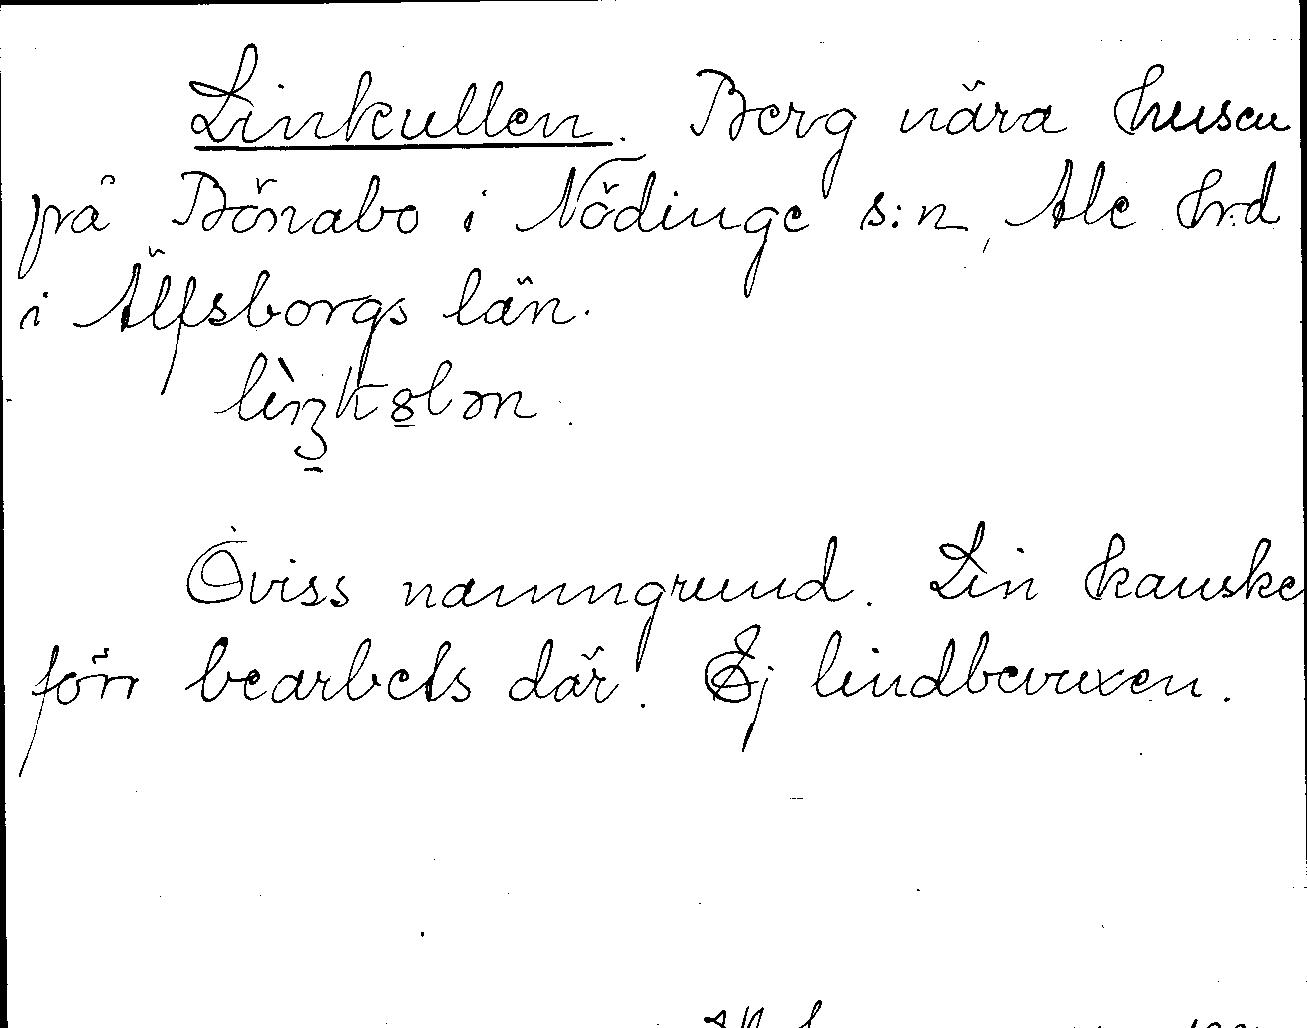 Linkullen. Berg nära husen
på Bönabo i Nödinge s:n, Ale hrd
i Älfsborgs län.
Oviss namngrund. Lin kanske
förr bearbets där. Ej lindbevuxen.